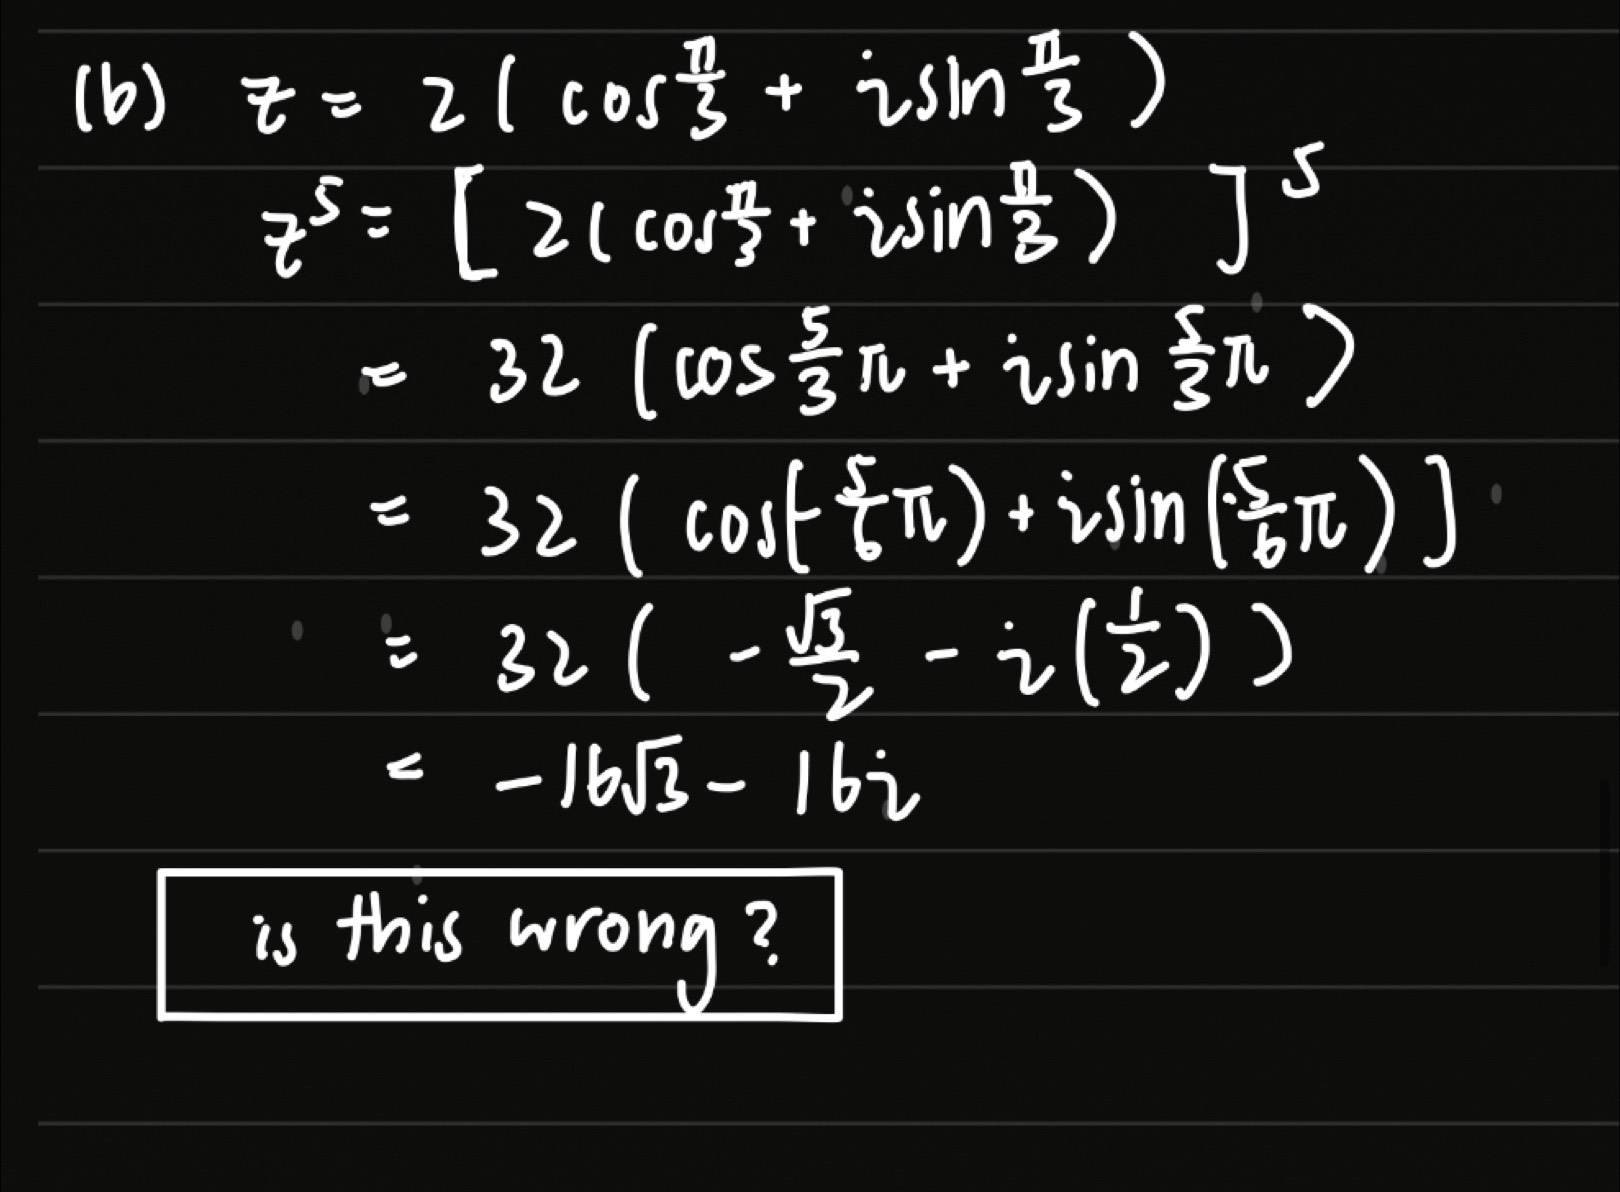 (b) z = 2 ( cos π/3 + i sin π/3 )
z⁵ = [ 2 ( cos π/3 + i sin π/3 ) ]⁵
= 32 ( cos 5/3 π + i sin 5/3 π )
= 32 ( cos(- 5/6 π) + i sin (-5/6 π) ]
= 32 ( - √3/2 - i (1/2) )
= -16√3 - 16i
is this wrong?